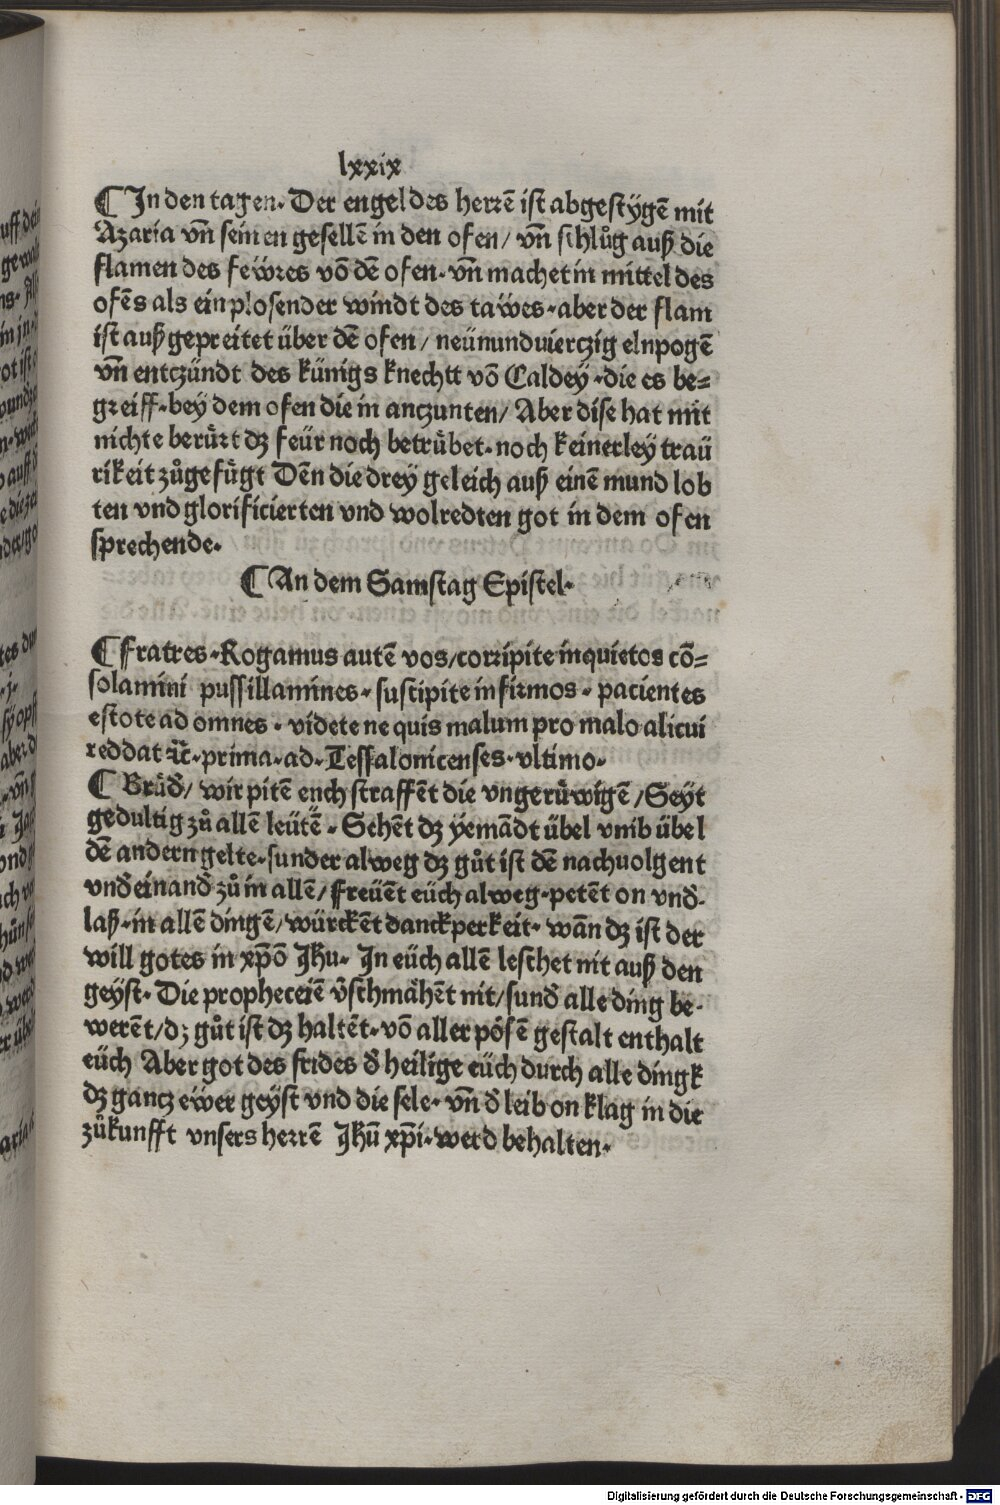 lxxix
¶ In den tagen· Der engel des herrē ist abgestÿgē mit
Azaria vn̄ seinen gesellē in den ofen/ vn̄ schlůg auß die
flamen des feẅres vō dē ofen· vn̄ machet in mittel des
ofēs als ein plosender windt des taẅes· aber der flam
ist außgepreitet über dē ofen/ neünundvierczig elnpogē
vn̄ entczündt des künigs knechtt vō Caldeÿ· die es be⸗
greiff· beÿ dem ofen die in anczunten/ Aber dise hat mit
nichte berůrt dz feür noch betrůbet· noch keinerleÿ traü
rikeit zůgefůgt Dēn die dreÿ geleich auß einē mund lob
ten vnd glorificierten vnd wolredten got in dem ofen
sprechende·
¶ An dem Samstag Epistel·
¶ Fratres· Rogamus autē vos/ corripite inquietos cō⸗
solamini pussillamines· suscipite infirmos· pacientes
estote ad omnes· videte ne quis malum pro malo alicui
reddat ꝛc̄· prima· ad· Tessalonicenses· vltimo·
¶ Brüd̄/ wir pitē euch straffēt die vngerůwigē/ Seÿt
gedultig zů allē leütē· Sehēt dz ÿemādt übel vnib übel
dē andern gelte· sunder alweg dz gůt ist dē nachuolgent
vnd̄ einand̄ zů in allē/ freüēt eüch alweg· petēt on vnd̄·
laß· in allē dingē/ würckēt danckperkeit· wān dz ist der
will gotes in xp̄ō Jhu· In eüch allē leschet nit auß den
geÿst· Die propheceiē v̄schmåhēt nit/ sund̄ alle ding be·
werēt/ dz gůt ist dz haltēt· vō aller pósē gestalt enthalt
eüch Aber got des frides d̄ heilige eüch durch alle dingk
dz gancz eẅer geÿst vnd die sele· vn̄ d̄ leib on klag in die
zůkunfft vnsers herrē Jhū xp̄i· werd behalten·
Digitalisierung gefördert durch die Deutsche Forschungsgemeinschaft - DFG